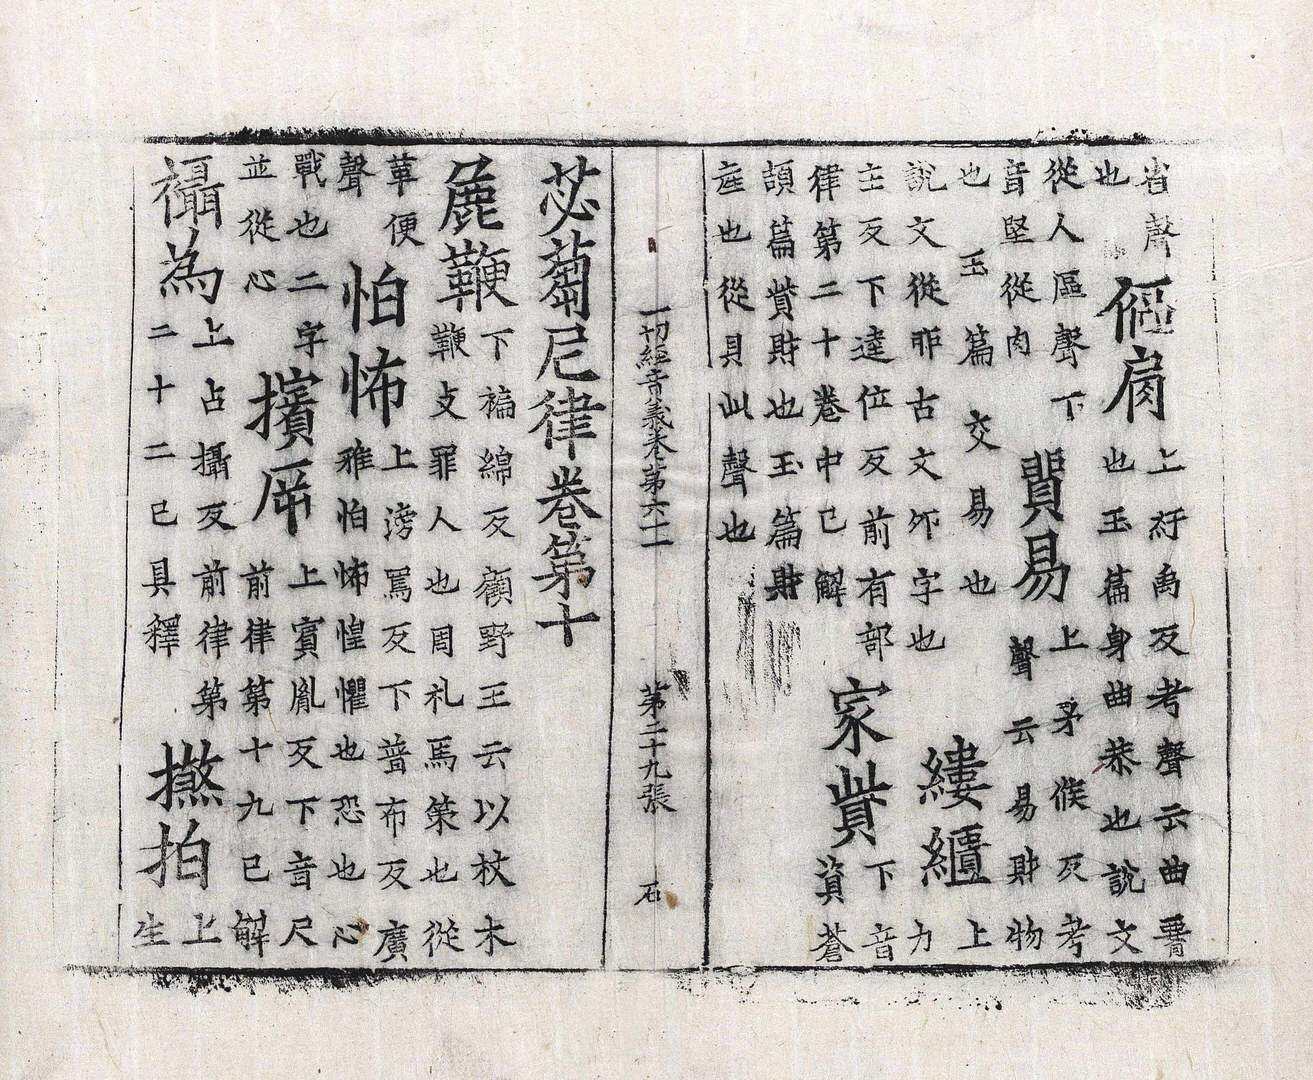 省聲
也
傴肩
上紆禹反考聲云曲脊
也玉篇身曲恭也說文
從人區聲下
音堅從肉
貿易
上矛候反考
聲云易財物
也玉篇交易也
說文從丣古文夘字也
縷䌶
上
力
主反下達位反前有部
律第二十卷中已解
家貲
下音
資蒼
頡篇貲財也玉篇財
產也從貝此聲也
一切經音義卷第六十一 第二十九張 石
苾蒭尼律卷第十
麁鞭
下褊綿反顧野王云以杖木
鞭攴罪人也周礼馬策也從
革便
聲
怕怖
上滂罵反下普布反廣
雅怕怖惶懼也恐也心
戰也二字
並從心
擯㡿
上賓胤反下音尺
前律第十九已解
襵為
上占攝反前律第
二十二已具釋
撚拍
上
生